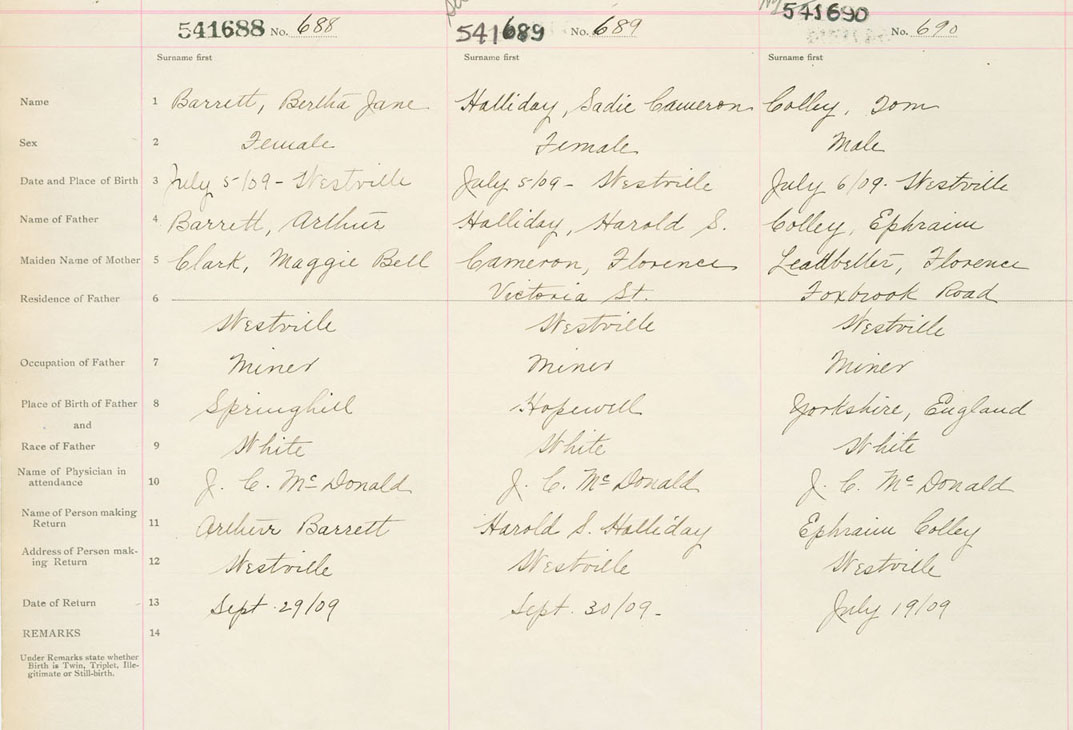 541688 No. 688 541689 No. 689 541690 No. 690
Surname first Surname first Surname first
Name 1 Barrett, Bertha Jane Halliday, Sadie Cameron Colley, Tom
Sex 2 Female Female Male
Date and Place of Birth 3 July 5/09 - Westville July 5/09 - Westville July 6/09 - Westville
Name of Father 4 Barrett, Arthur Halliday, Harold S. Colley, Ephraim
Maiden Name of Mother 5 Clark, Maggie Bell Cameron, Florence Leadbetter, Florence
Residence of Father 6 Victoria St. Foxbrook Road
Westville Westville Westville
Occupation of Father 7 Miner Miner Miner
Place of Birth of Father 8 Springhill Hopewell Yorkshire, England
and
Race of Father 9 White White White
Name of Physician in
attendance 10 J. C. McDonald J. C. McDonald J. C. McDonald
Name of Person making
Return 11 Arthur Barrett Harold S. Halliday Ephraim Colley
Address of Person mak-
ing Return 12 Westville Westville Westville
Date of Return 13 Sept. 29/09 Sept. 30/09- July 19/09
REMARKS 14
Under Remarks state whether
Birth is Twin, Triplet, Ille-
gitimate or Still-birth.